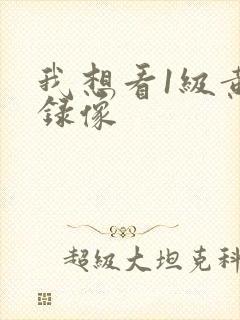 我想看1級
錄像
超級大坦克科